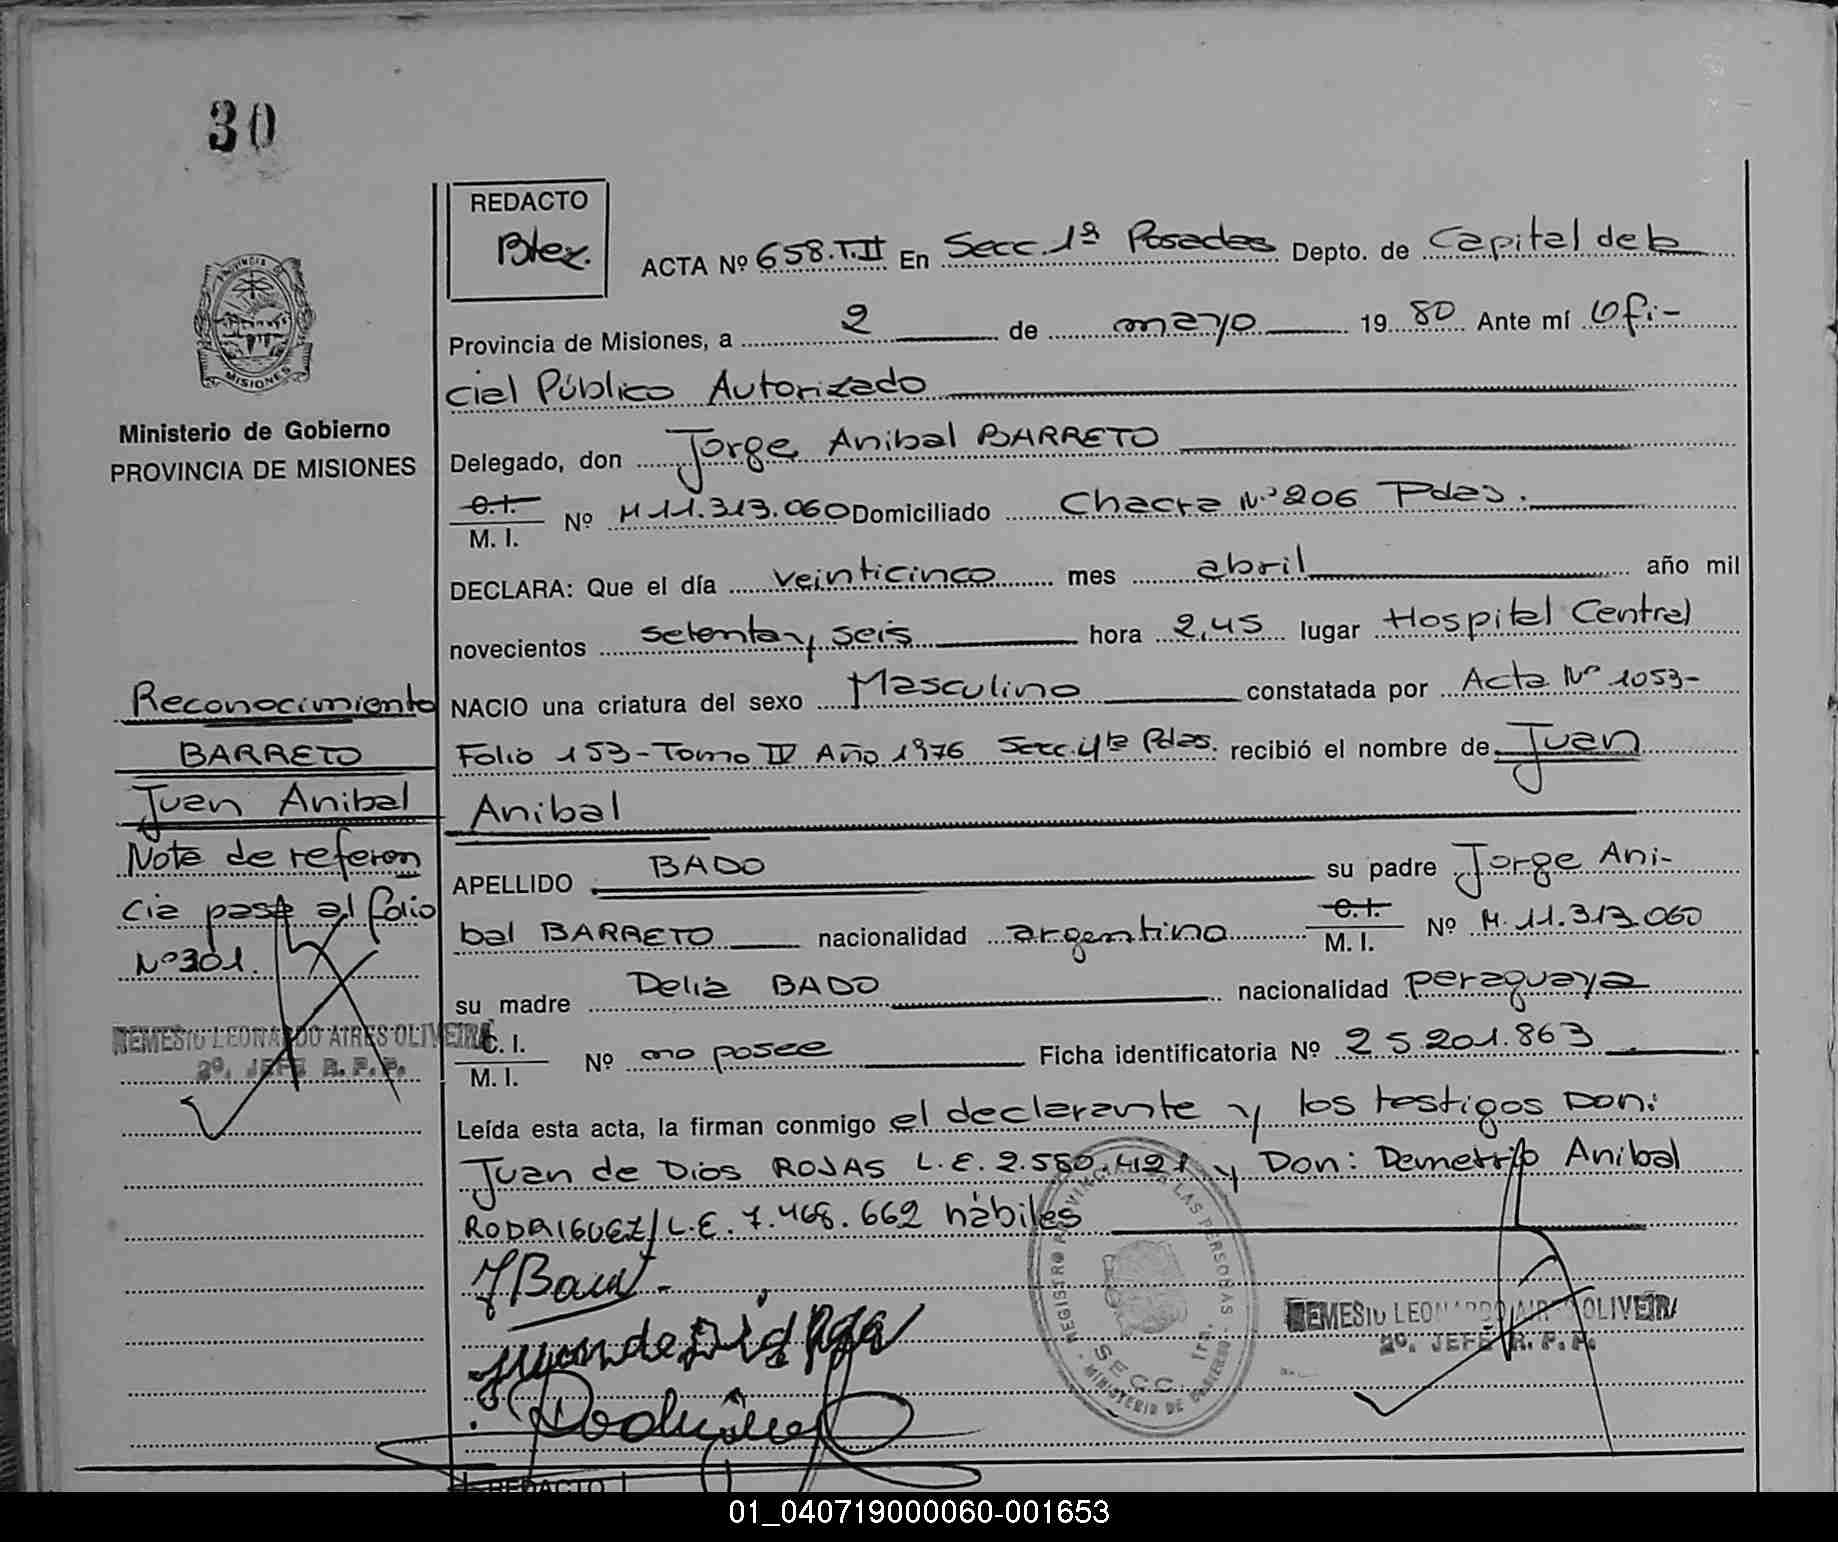 30
REDACTO
Btez.
ACTA Nº 658.T.II En Secc. 1ª Posadas Depto. de Capital de la
Provincia de Misiones, a 2 de mayo 19 80 Ante mí Ofi-
cial Público Autorizado
Delegado, don Jorge Anibal BARRETO
C.I.
M. I. Nº M 11.313.060 Domiciliado Chacra Nº 206 Pdas.
DECLARA: Que el día veinticinco mes abril año mil
novecientos setenta y seis hora 2,45 lugar Hospital Central
NACIO una criatura del sexo Masculino constatada por Acta Nº 1053-
Folio 153-Tomo IV Año 1976 Secc. 4ta Pdas. recibió el nombre de Juan
Anibal
APELLIDO BADO su padre Jorge Ani-
bal BARRETO nacionalidad argentino C.I. M. I. Nº M. 11.313.060
su madre Delia BADO nacionalidad paraguaya
C. I.
M. I. Nº no posee Ficha identificatoria Nº 25.201.863
Leída esta acta, la firman conmigo el declarante y los testigos Don:
Juan de Dios ROJAS L.E. 2.580.421 y Don: Demetrio Anibal
RODRIGUEZ/L.E. 7.468.662 hábiles
PROVINCIA DE
MISIONES
Ministerio de Gobierno
PROVINCIA DE MISIONES
Reconocimiento
BARRETO
Juan Anibal
Nota de referen
cia pasa al folio
Nº 301.
REMESIO LEONARDO AIRES OLIVEIRA
2º. JEFE R. P. P.
REGISTRO PROVINCIAL DE LAS PERSONAS
SECC. 1ra.
MINISTERIO DE GOBIERNO
REMESIO LEONARDO AIRES OLIVEIRA
2º. JEFE R. P. P.
REDACTO
01_040719000060-001653